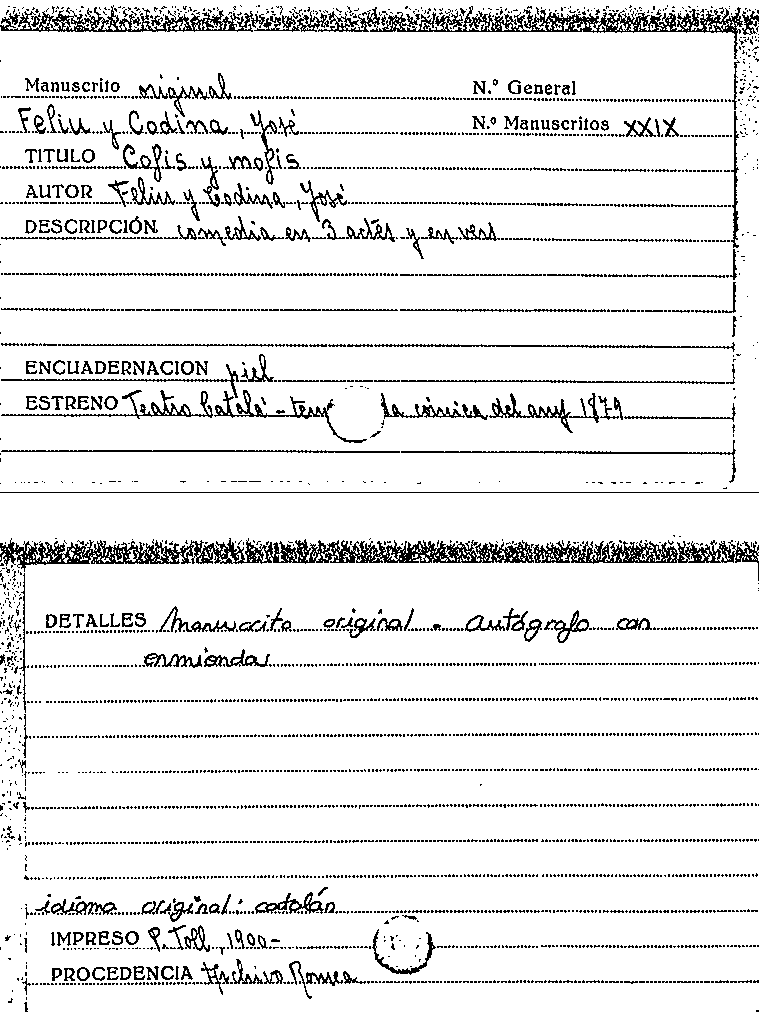 Manuscrito original N.º General
Feliu y Codina, José N.º Manuscritos XXIX
TITULO Cofis y mofis
AUTOR Feliu y Codina, José
DESCRIPCIÓN comedia en 3 actes y en vers
ENCUADERNACION piel
ESTRENO Teatro Catalá - temp la cómica del any 1879
DETALLES Manuscrito original - Autógrafo con
enmiendas
idioma original: catalán
IMPRESO P. Toll, 1900-
PROCEDENCIA Archivo Romea